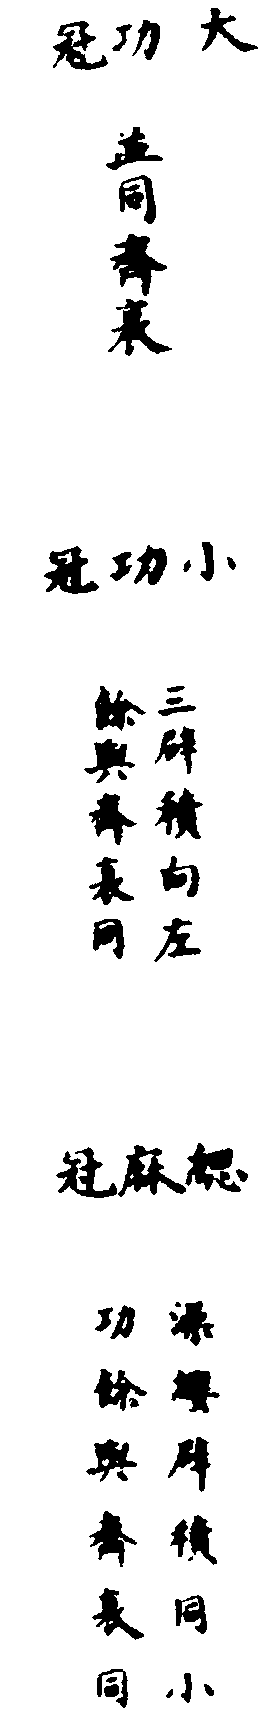 大功冠
並同齊衰
小功冠
三辟積向左
餘與齊衰同
緦麻冠
澡纓辟積同小
功餘與齊衰同